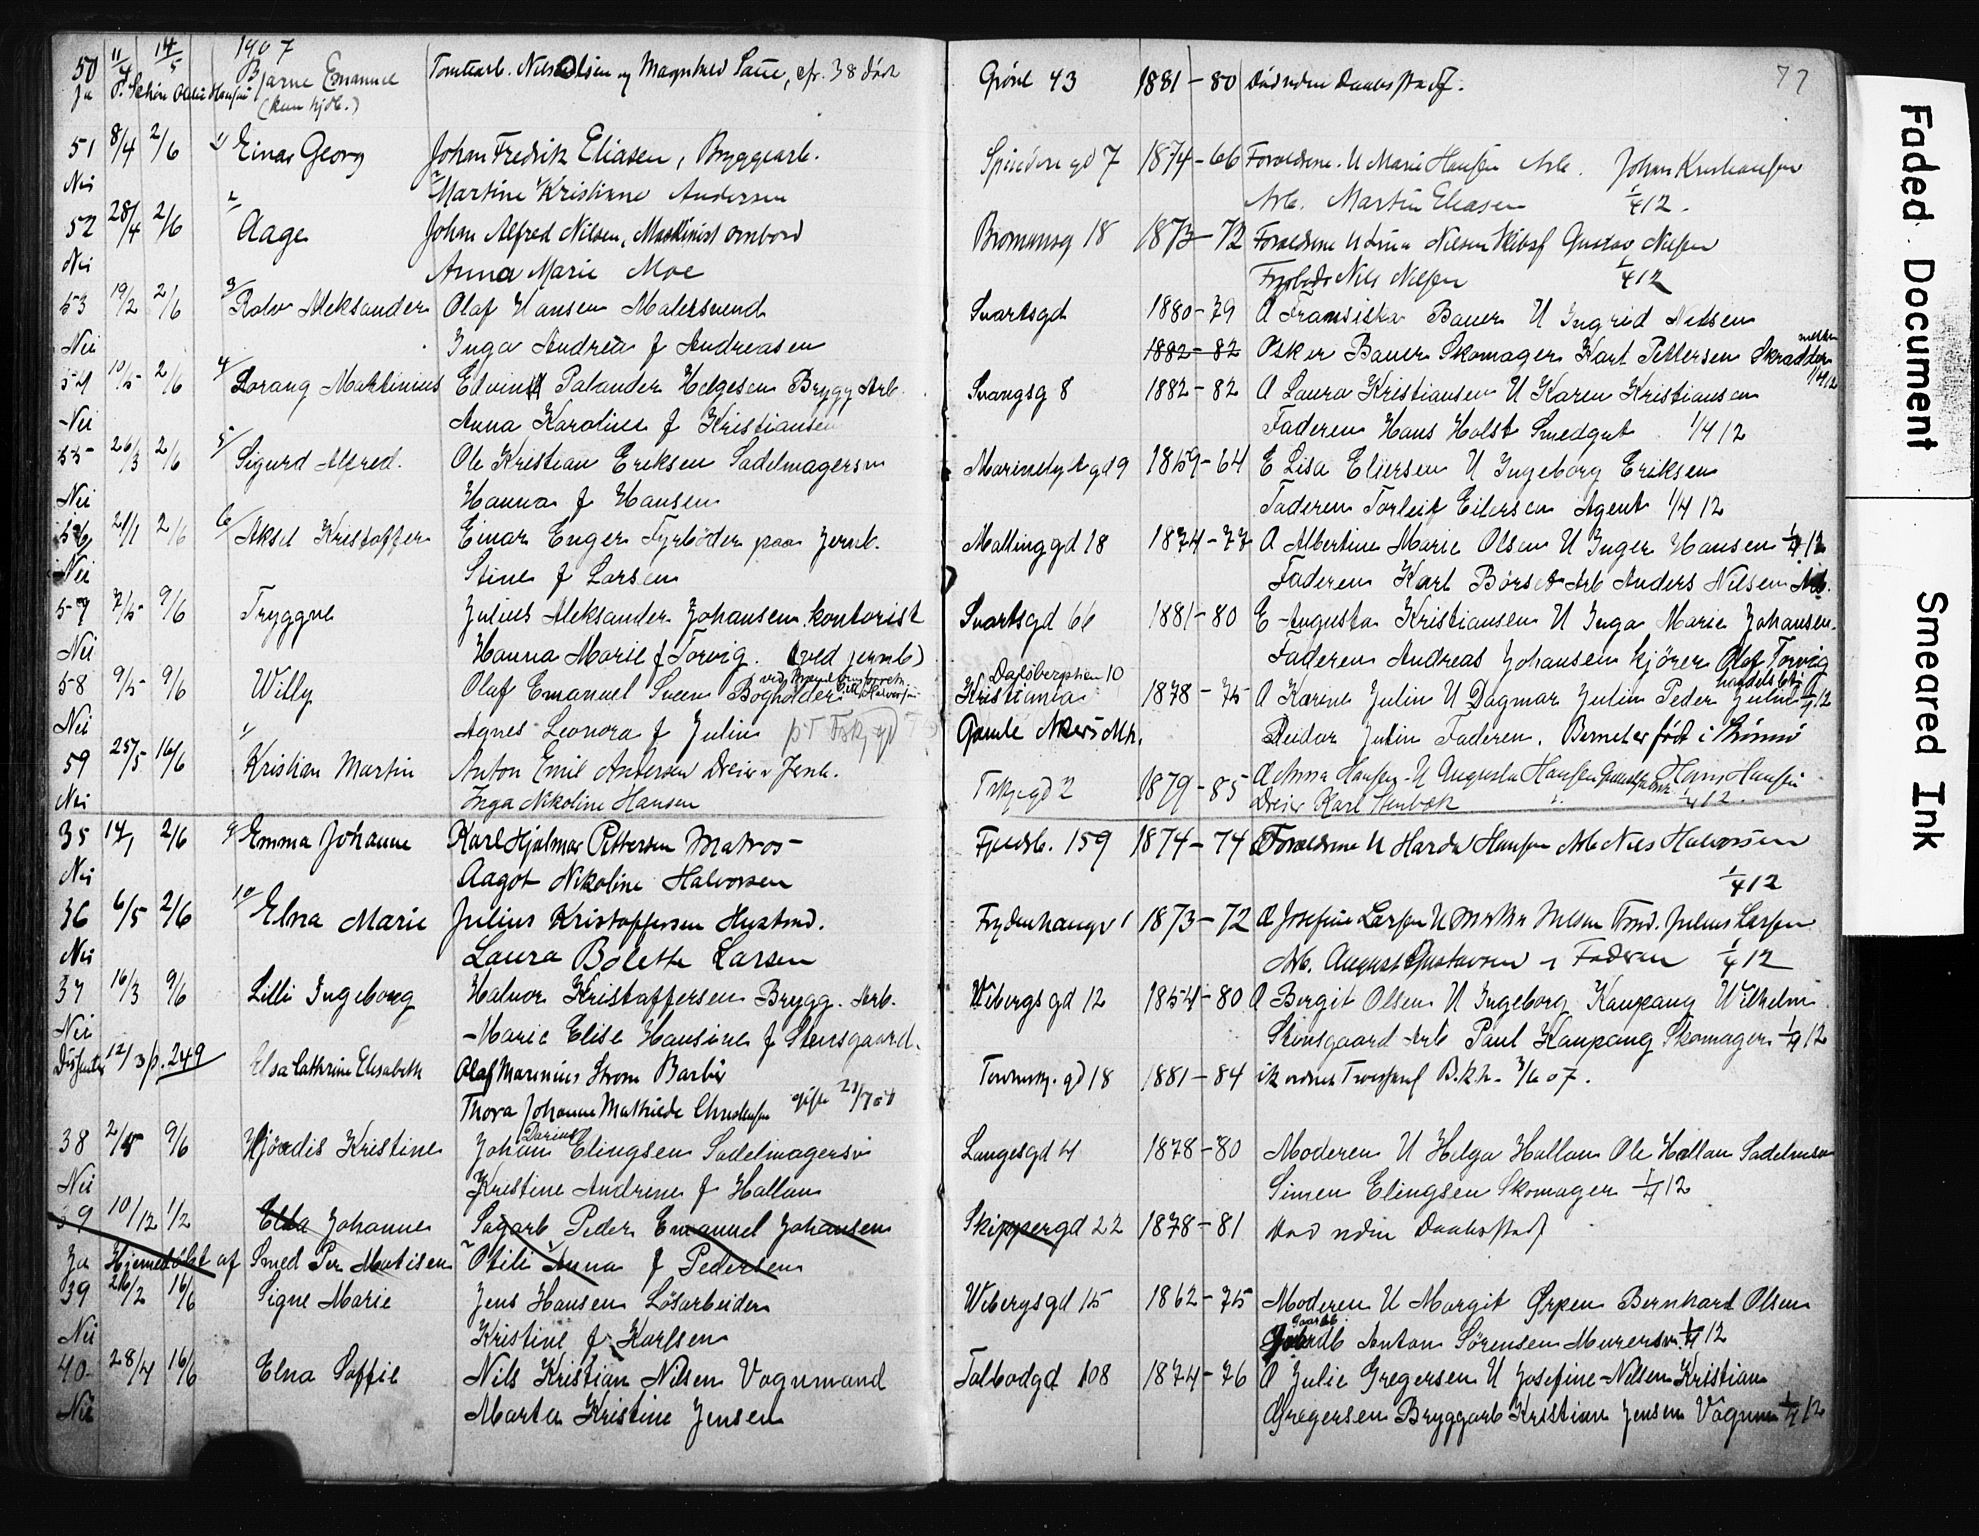 1907
77
50 11/4 14/5 Bjarne Emanuel Tomtearb. Nils Olsen og Magnhild Grönl 43 1881-80 Död uden Daabsstadf.
Ja (kun hjd.)
51 8/4 2/6 1/ Einar Georg Johan Fredrik Eliasen, Bryggearb. gd 7 1874-66 Forældrene. U Marie Hansen Arb. Johan Kristiansen
Nei Martine Kristiane Andersen Arb. Martin Eliasen 1/4 12.
52 28/4 2/6 2/ Aage Johan Alfred Nilsen, Maskinist ombord 18 1873-72 Forældrene U Lina Nilsen Gustav Nilsen
Nei Anna Marie Moe Nils Nilsen 1/4 12
53 19/2 2/6 3/ Rolv Aleksander Olaf Hansen Malersvend Svartsgd 1880-79 A Fransiska Bauer U Ingrid Nilsen
Nei Inga Andrea f Andreasen 1882-82 Osker Bauer Skomager Karl Pettersen Skrædder
54 10/5 2/6 4/ Lorang Martinius Edvin Palander Helgesen Brygg Arb. Svangsg 8 1882-82 A Laura Kristiansen U Karen Kristiansen
Nei Anna Karoline f Kristiansen Faderen Hans Holst Smedgut 1/4 12
55 26/3 2/6 5/ Sigurd Alfred. Ole Kristian Eriksen Sadelmagersv gd 9 1859-64 E Lisa Eliersen U Ingeborg Eriksen
Nei Hanna f Hansen Faderen Torleif Eilersen Agent 1/4 12
56 21/1 2/6 6/ Aksel Kristoffer Einar Enger Fyrböder paa Jernb. Mallinggd 18 1874-77 A Albertine Marie Olsen U Inger Hansen 1/4 12
Nei Stine f Larsen Faderen Karl Börset Arb Anders Nilsen Arb.
57 7/5 9/6 Tryggve Julius Aleksander Johansen kontorist Svartsgd 66 1881-80 E Augusta Kristiansen U Inga Marie Johansen
Nei Hanna Marie f Torvig. (ved jernb) Faderen Andreas Johansen kjörer Olaf Torvig
58 9/5 9/6 Willy Olaf Emanuel Sveen Bogholder Dalsbergstien 10 Kristiania 1878-75 A Karine Julin U Dagmar Julin Peder Julin 1/4 12
Nei Agnes Leonora f Julin Gamle Akers Mh. Reidar Julin Faderen. Barnet er födt i
59 25/5 16/6 Kristian Martin Anton Emil Andersen Dreier v Jernb. 1879-85 A Anna Hansen U Augusta Hansen Hans Hansen
Nei Inga Nikoline Hansen Dreier Karl Stenbæk 1/4 12.
35 14/1 2/6 9/ Emma Johanne Karl Hjalmar Pettersen Matros Fjeldb. 159 1874-74 Forældrene U Harda Hansen Arb Nils Halvorsen
Nei Aagot Nikoline Halvorsen 1/4 12
36 6/5 2/6 10/ Elna Marie Julius Kristoffersen Hustmd. 1 1873-72 A Josefine Larsen U Julius Larsen
Nei Laura Bolette Larsen Arb. August Gustavsen Faderen 1/4 12
37 16/3 9/6 Lilli Ingeborg Halvor Kristoffersen Brygg. Arb. Wibergs gd 12 1854-80 A Bergit Olsen U Ingeborg Kaupang Wilhelm
Nei Marie Elise Hansine f Stensgaard. Stensgaard Arb Paul Kaupang Skomager 1/4 12
Dissenter 12/3 p. 249 Elsa Cathrine Elisabeth Olaf Marinius Strøm Barbér gd 18 1881-84
Thora Johanne Mathilde
38 2/5 9/6 Hjördis Kristine Johan Darius Elingsen Sadelmagersv Langesgd 4 1878-80 Moderen U Helga Hallan Ole Hallan Sadelmsv
Nei Kristine Andrine f Hallan Simen Elingsen Skomager 1/4 12
39 10/12 1/2 Elda Johanne Sagarb Peder Emanuel Johansen Skippergd 22 1878-81 Död uden Daabsstadf
Ja Hjemedöbt af Smed Per Matisen Otili Anna f Pedersen
39 26/2 16/6 Signe Marie Jens Hansen Lösarbeider Wibergsgd 15 1862-75 Moderen U Margit Ørpen Bernhard Olsen
Nei Kristine f Karlsen Anton Sörensen Murersv. 1/4 12
40 28/4 16/6 Elna Soffie Nils Kristian Nilsen Vognmand Tolbodgd 108 1874-76 A Julie Gregersen U Josefine Nilsen Kristian
Nei Marta Kristine Jensen Gregersen Bryggarb Kristian Jensen Vognm 1/4 12
Faded Document
Smeared Ink